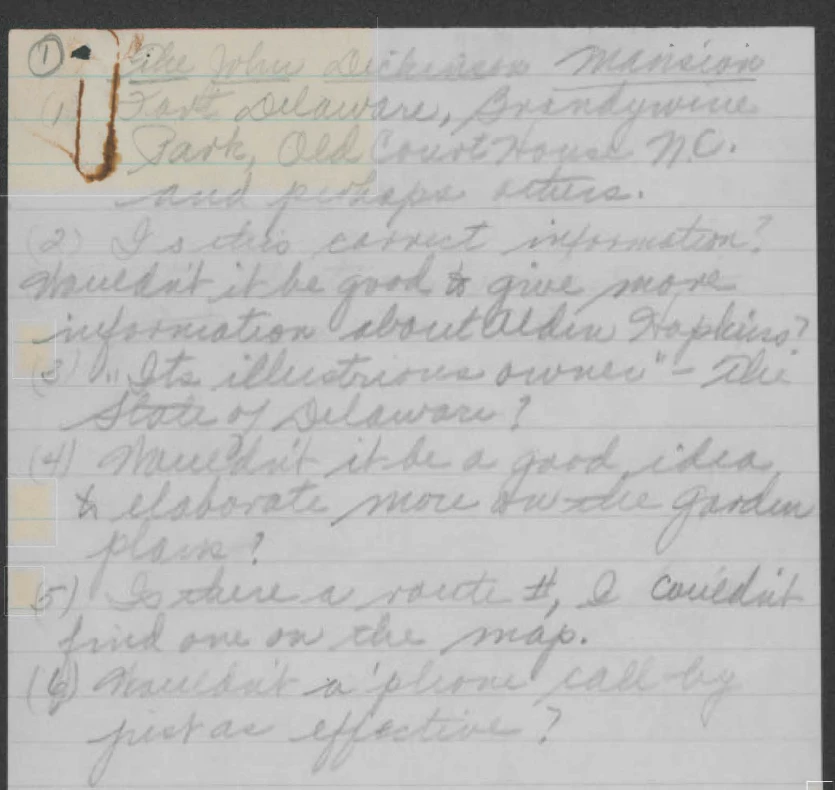 ① The John Dickinson Mansion
(1) Fort Delaware, Brandywine
Park, Old Court House N.C.
and perhaps others.
(2) Is this correct information?
Wouldn't it be good to give more
information about Alden Hopkins?
(3) "Its illustrious owner" - The
State of Delaware?
(4) Wouldn't it be a good idea
to elaborate more on the garden
plans?
(5) Is there a route #, I couldn't
find one on the map.
(6) Wouldn't a 'phone call by
just as effective?